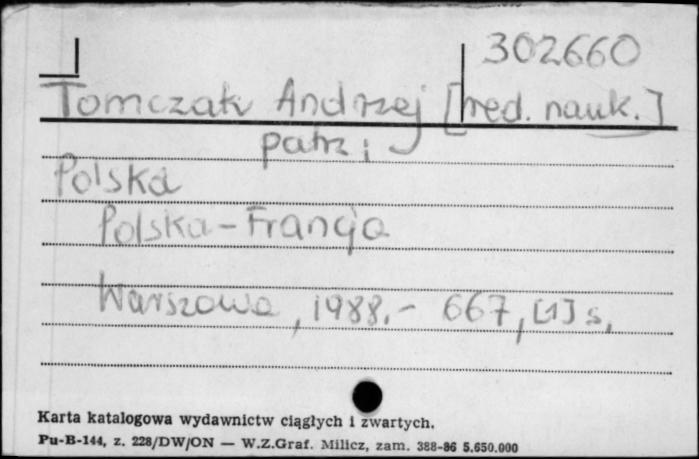 302660
Tomczak Andrzej [red. nauk.]
patrz:
Polska
Polska-Francja
Warszawa, 1988.- 667, [1] s.
Karta katalogowa wydawnictw ciągłych i zwartych.
Pu-B-144, z. 228/DW/ON — W.Z.Graf. Milicz, zam. 388-86 5.650.000